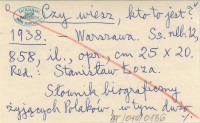 „Czy wiesz, kto to jest?"
1938. – Warszawa. Ss. nlb. 12,
858, il., opr., cm 25 x 20.
Red.: Stanisław Łoza.
Słownik biograficzny
żyjących Polaków, w tym dużo